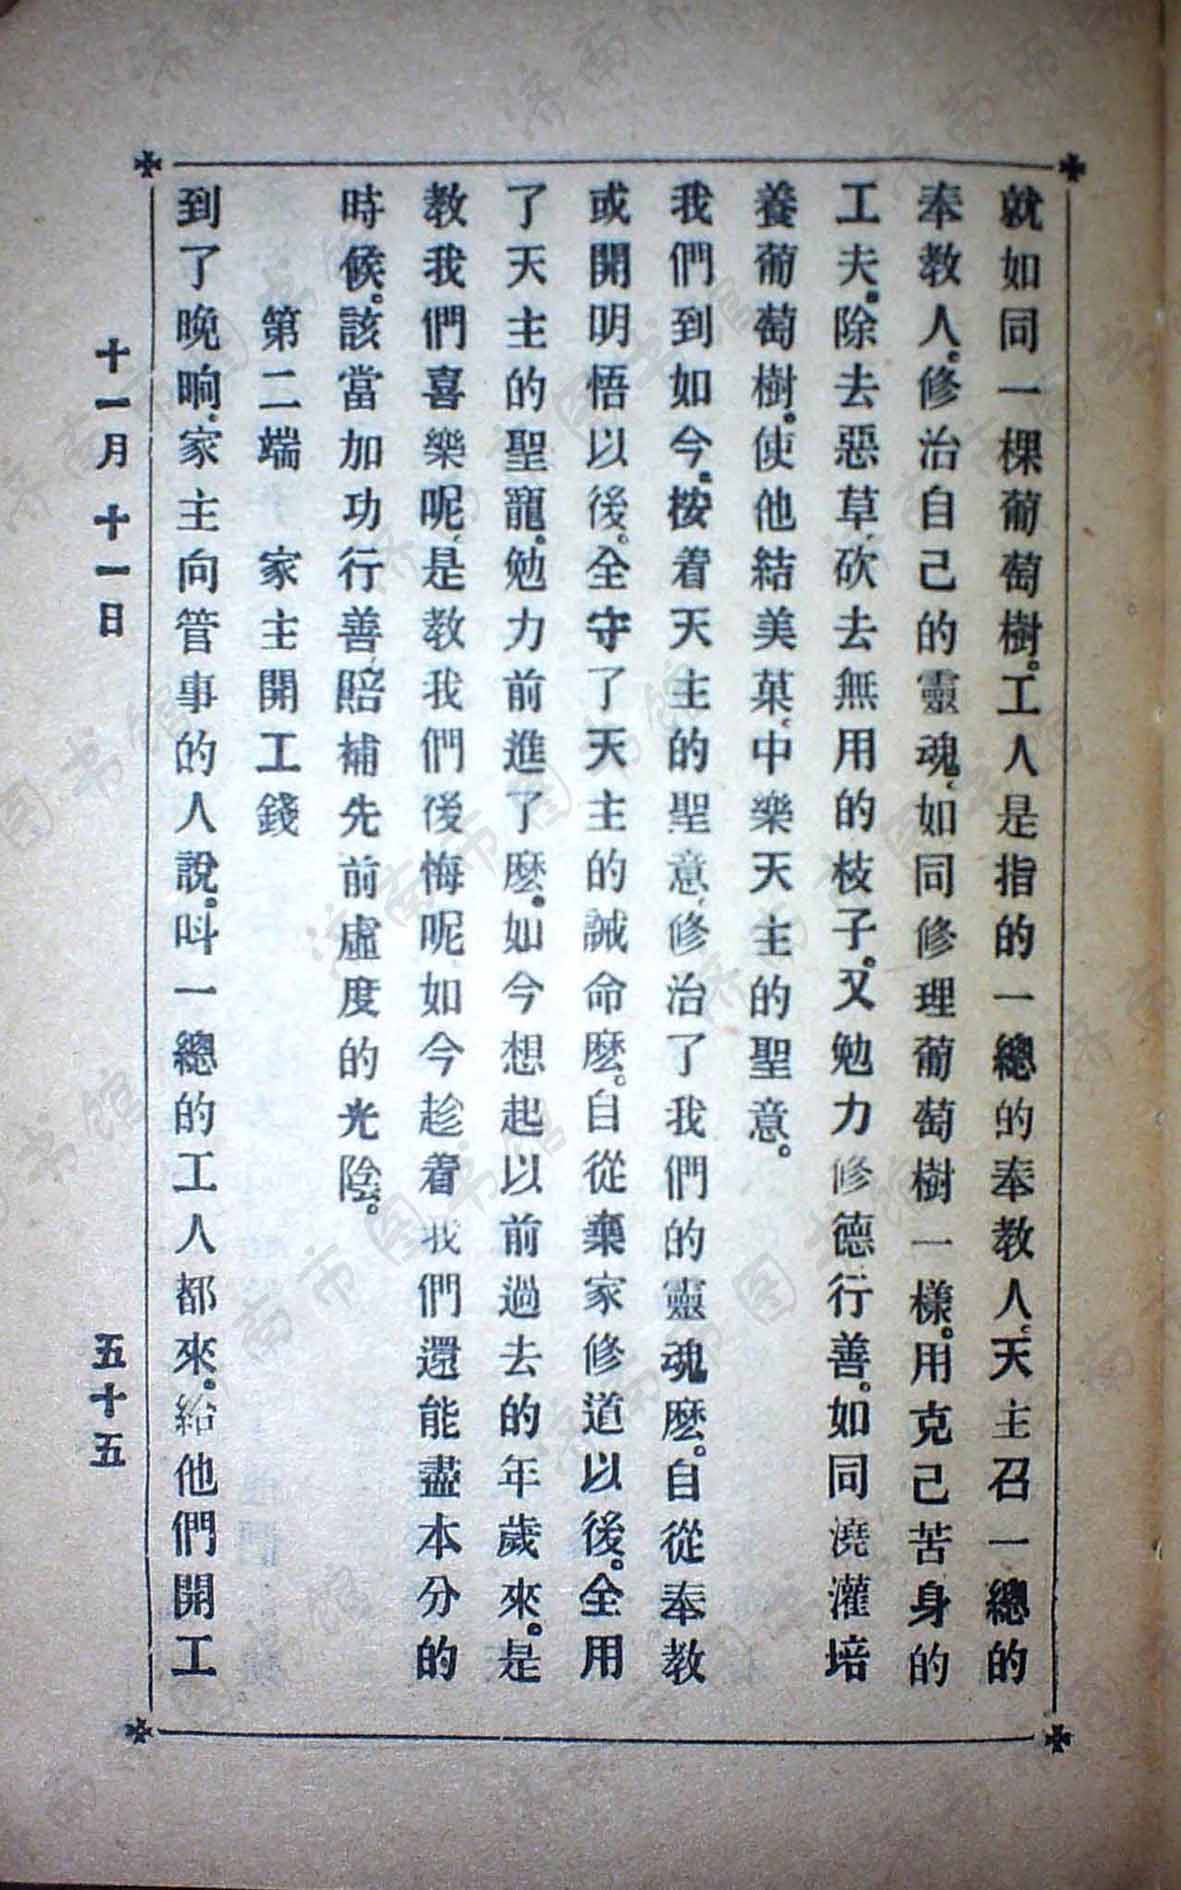 就如同一棵葡萄樹。工人是指的一總的奉教人、天主召一總的
奉教人。修治自己的靈魂、如同修理葡萄樹一樣。用克己苦身的
工夫。除去惡草、砍去無用的枝子。又勉力修德行善。如同澆灌培
養葡萄樹。使他結美菓、中樂天主的聖意。
我們到如今。按着天主的聖意、修治了我們的靈魂麽。自從奉教
或開明悟以後。全守了天主的誡命麽。自從棄家修道以後。全用
了天主的聖寵。勉力前進了麽。如今想起以前過去的年歲來。是
教我們喜樂呢、是教我們後悔呢如今趁着我們還能盡本分的
時候。該當加功行善、賠補先前虛度的光陰。
第二端　家主開工錢
到了晚晌、家主向管事的人說。呌一總的工人都來。給他們開工
十一月十一日　五十五
济南市图书馆